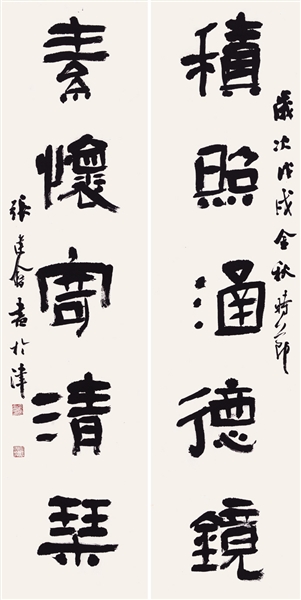 歲次戊戌金秋時節
積照涵德鏡
素懷寄清琴
張建會書於津